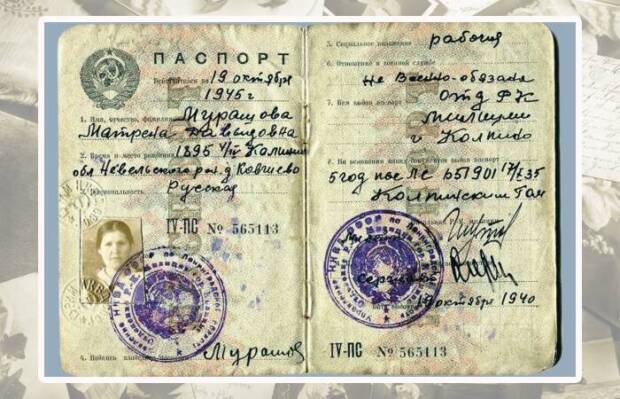 ПАСПОРТ
Действителен по 19 октября
1945 г
1. Имя, отчество, фамилия Мурашова
Матрена Давыдовна
2. Время и место рождения 1895 Калинин
обл Невельского рай. д
3. Национальность Русская
IV-ПС № 565113
4. Подпись Мурашов
5. Социальное положение рабочая
6. Отношение к военной службе
не военно-обязана
7. Кем выдан паспорт Отд РК
милиции
г Колпино
8. На основании каких документов выдан паспорт
5 год пас ЛС 657901
Колпинским
19 октября 1940
IV-ПС № 565113